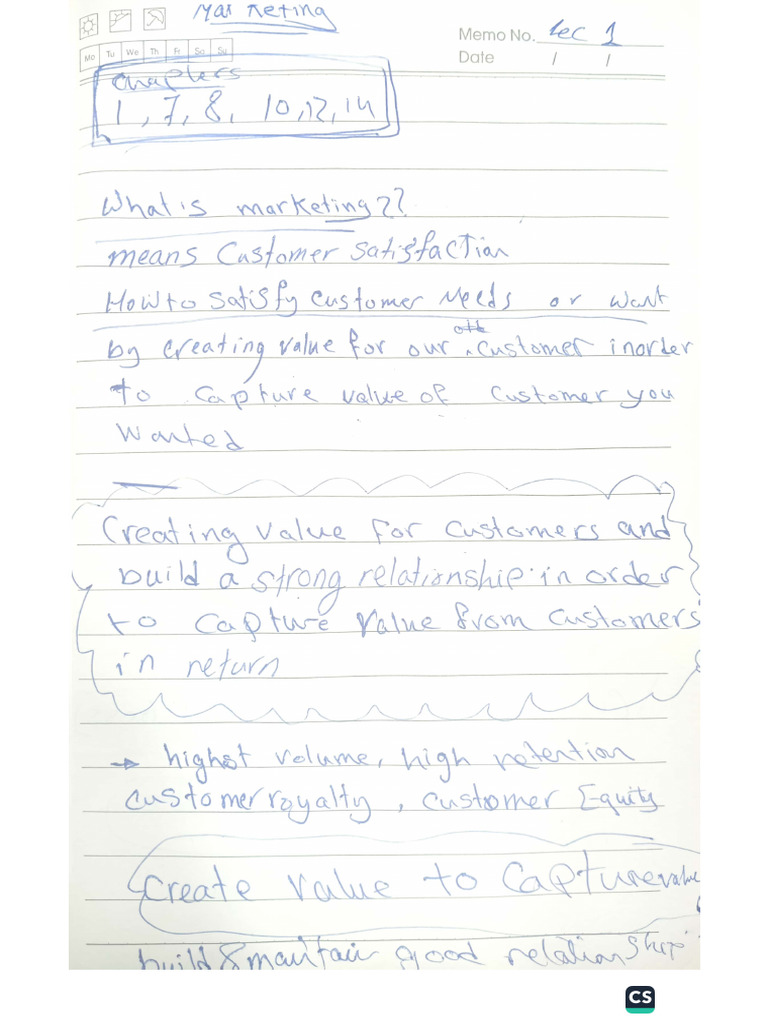 Marketing
Memo No. Lec 1
Date / /
Mo Tu We Th Fr Sa Su
Chapters
1, 7, 8, 10, 12, 14
What's marketing??
means Customer Satisfaction
How to satisfy customer Needs or want
by creating value for our customer inorder
to capture value of customer you
wanted
Creating value for customers and
build a strong relationship in order
to capture value from customers
in return
→ highest volume, high retention
customer royalty, customer Equity
create value to capture value
build & maintain good relationship
CS